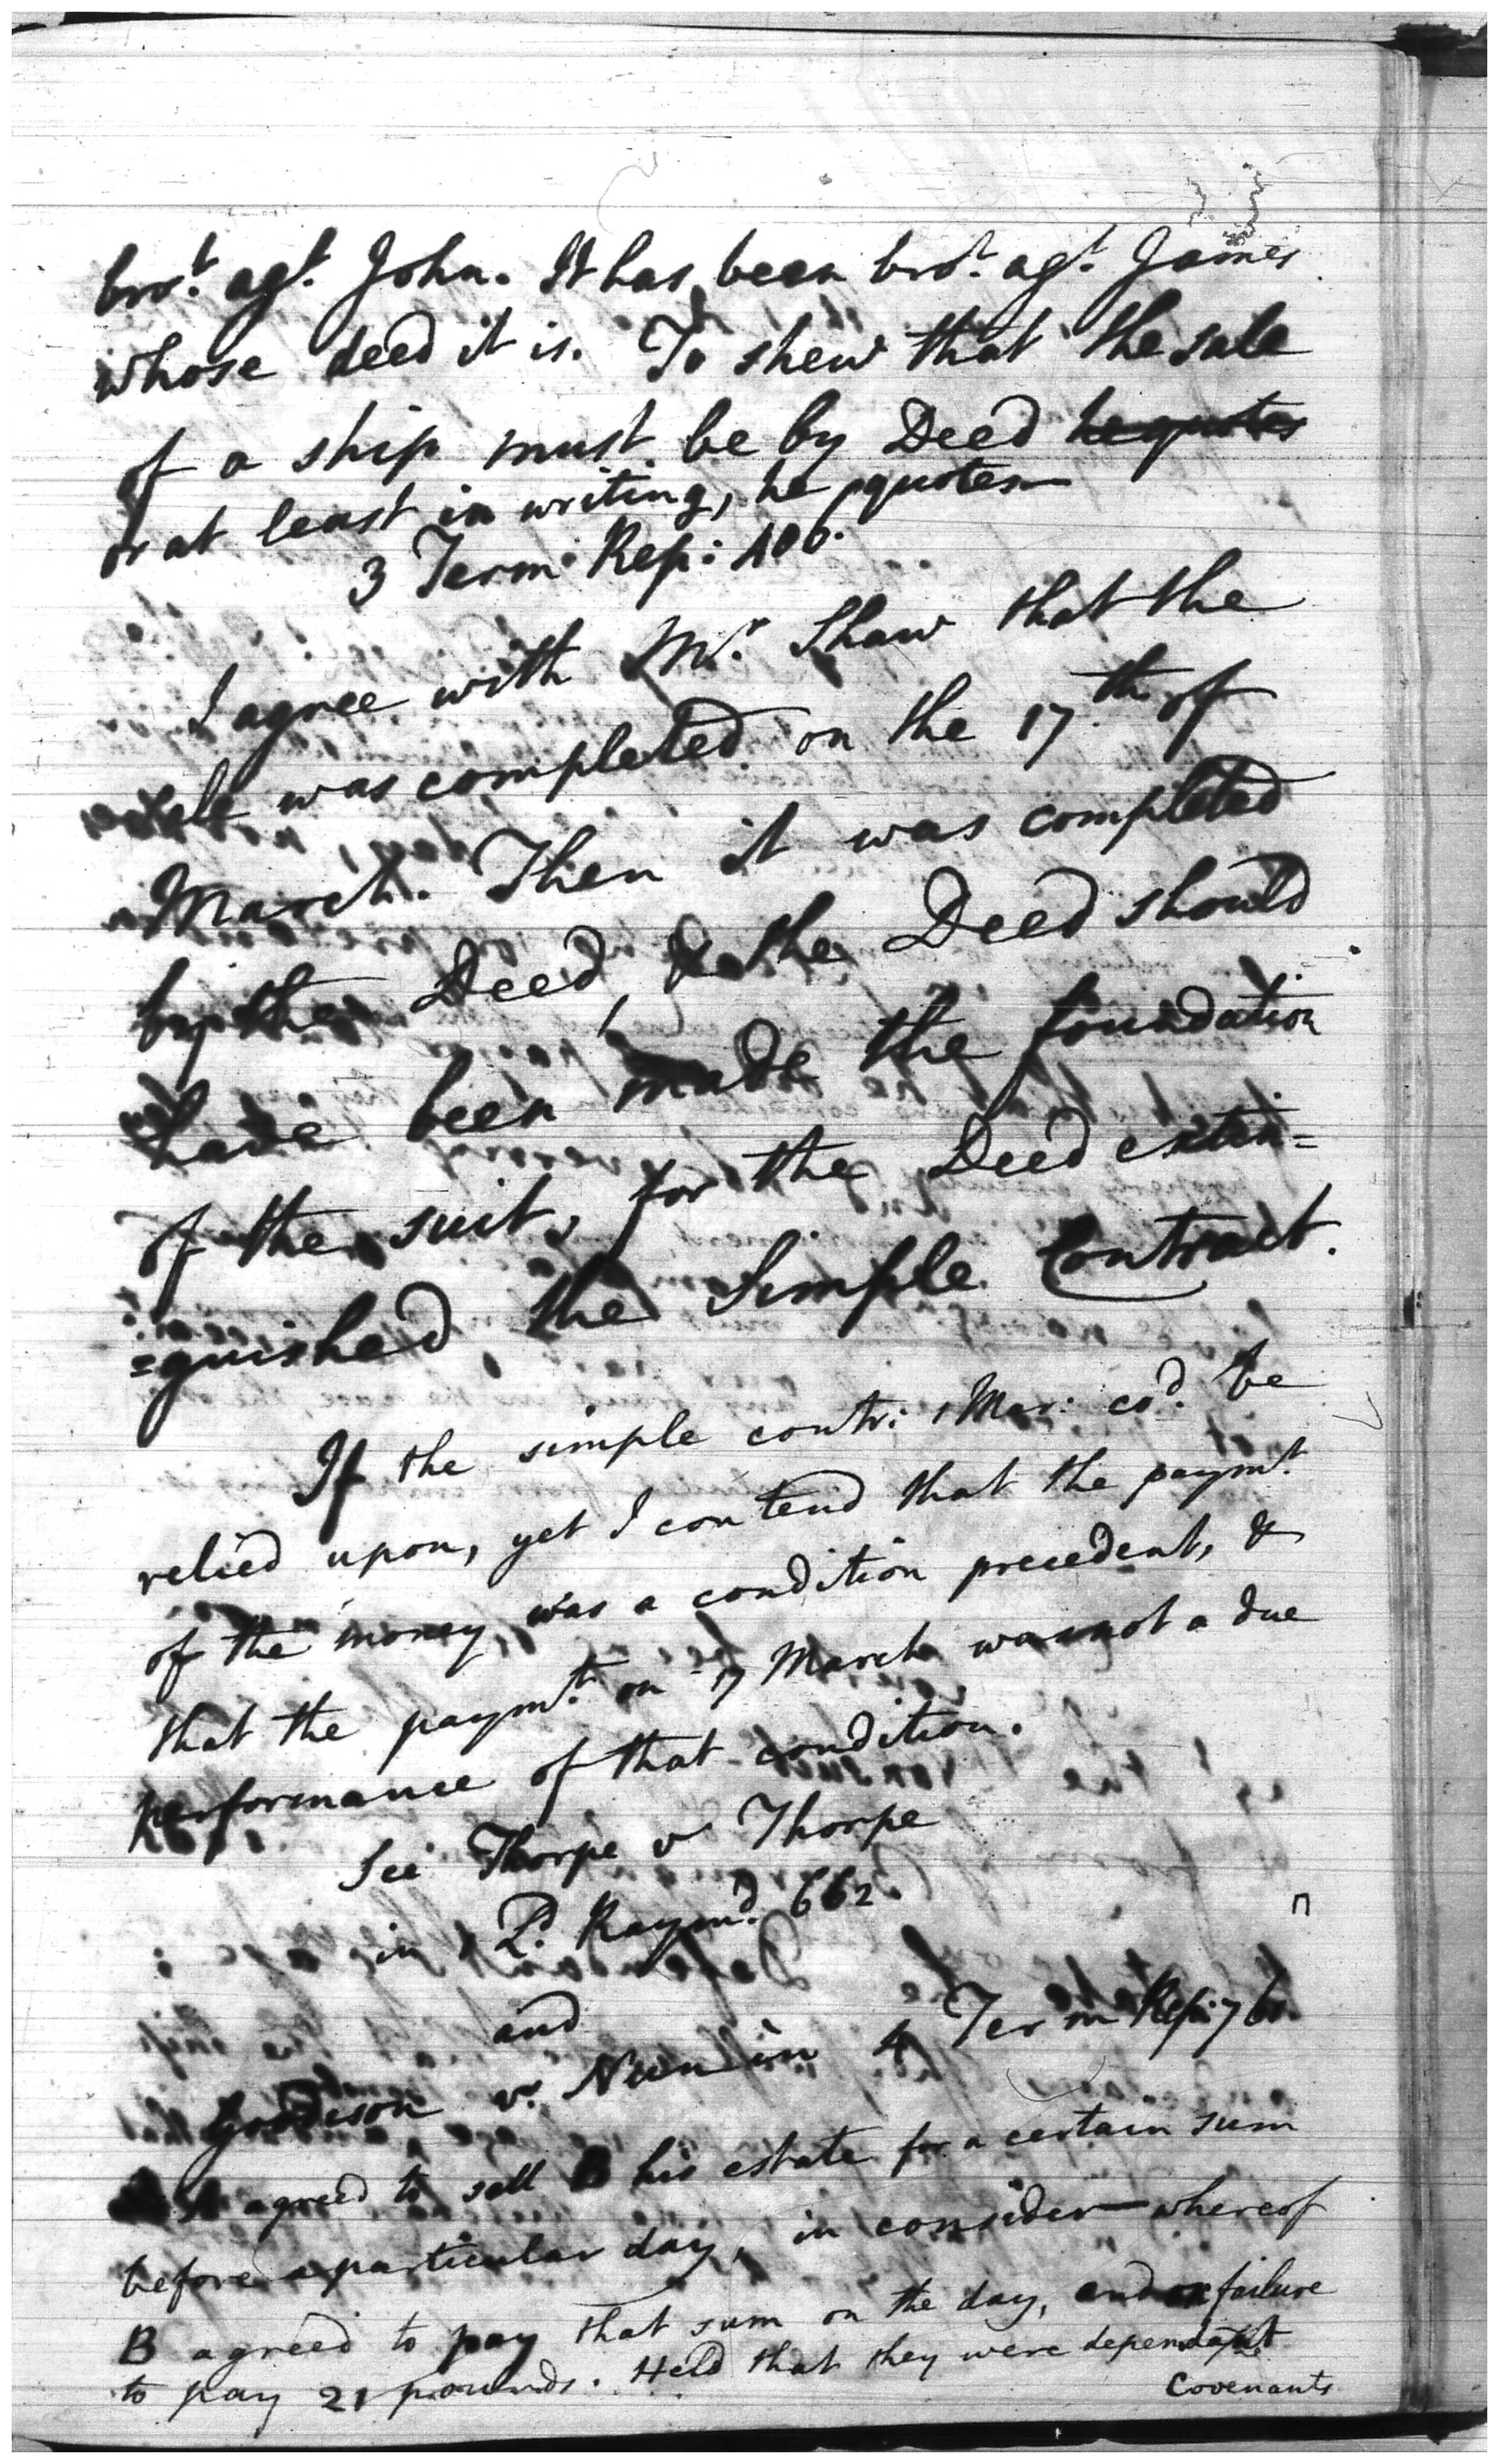 bro.t ag.t John. It has been bro.t ag.t James
whose deed it is. To shew that the sale
of a ship must be by Deed he quotes
or at least in writing, he quotes
3 Term: Rep: 406.
I agree with Mr. Shaw that the
sale was completed on the 17.th of
March. Then it was completed
by the Deed, & the Deed should
have been made the foundation
of the suit, for the Deed extin=
=guished the Simple Contract.
If the simple contr: 1 Mar: co.d be
relied upon, yet I contend that the paym.t
of the money was a condition precedent, &
that the paym.t on 17 March was not a due
performance of that condition.
See Thorpe v Thorpe
in 1 L.d Raym.d 662.
and
Goodison v. Nunn in 4 Term Rep: 761.
A agreed to sell B his estate for a certain sum
before a particular day, in consider— whereof
B agreed to pay that sum on the day, and on failure
to pay 21 pounds. Held that they were dependant
Covenants